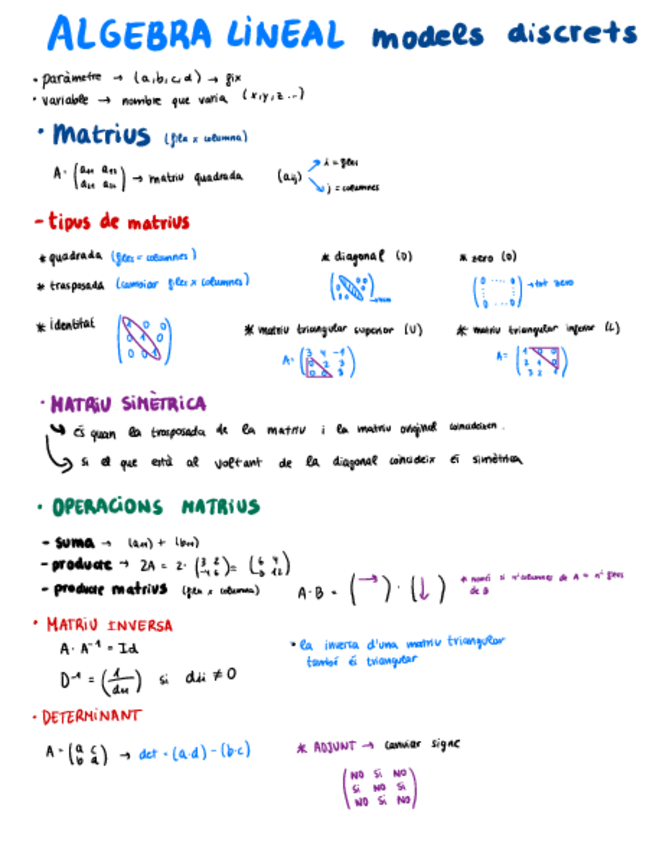 ALGEBRA LINEAL models discrets
· paràmetre → (a,b,c,d) → fix
· variable → nombre que varia (x,y,z...)
· Matrius (fila x columna)
A = (a₁₁ a₁₂ a₂₁ a₂₂) → matriu quadrada (aij) i = files
j = columnes
- tipus de matrius
* quadrada (files = columnes) * diagonal (D) * zero (0)
* trasposada (canviar files x columnes) → tot zero
* identitat * matriu triangular superior (U) * matriu triangular inferior (L)
A = A =
· MATRIU SIMÈTRICA
↳ és quan la trasposada de la matriu i la matriu original coincideixen.
↳ si el que està al voltant de la diagonal coincideix és simètrica
· OPERACIONS MATRIUS
- suma →
- producte → 2A = 2·
- producte matrius (fila x columna) A·B = (→) · (↓) * només si nº columnes de A = nº files de B
· MATRIU INVERSA
A · A⁻¹ = Id · la inversa d'una matriu triangular
també és triangular
D⁻¹ = si dii ≠ 0
· DETERMINANT
A = (a c b d) → det = (a·d) - (b·c) * ADJUNT → canviar signe
NO SI NO
SI NO SI
NO SI NO